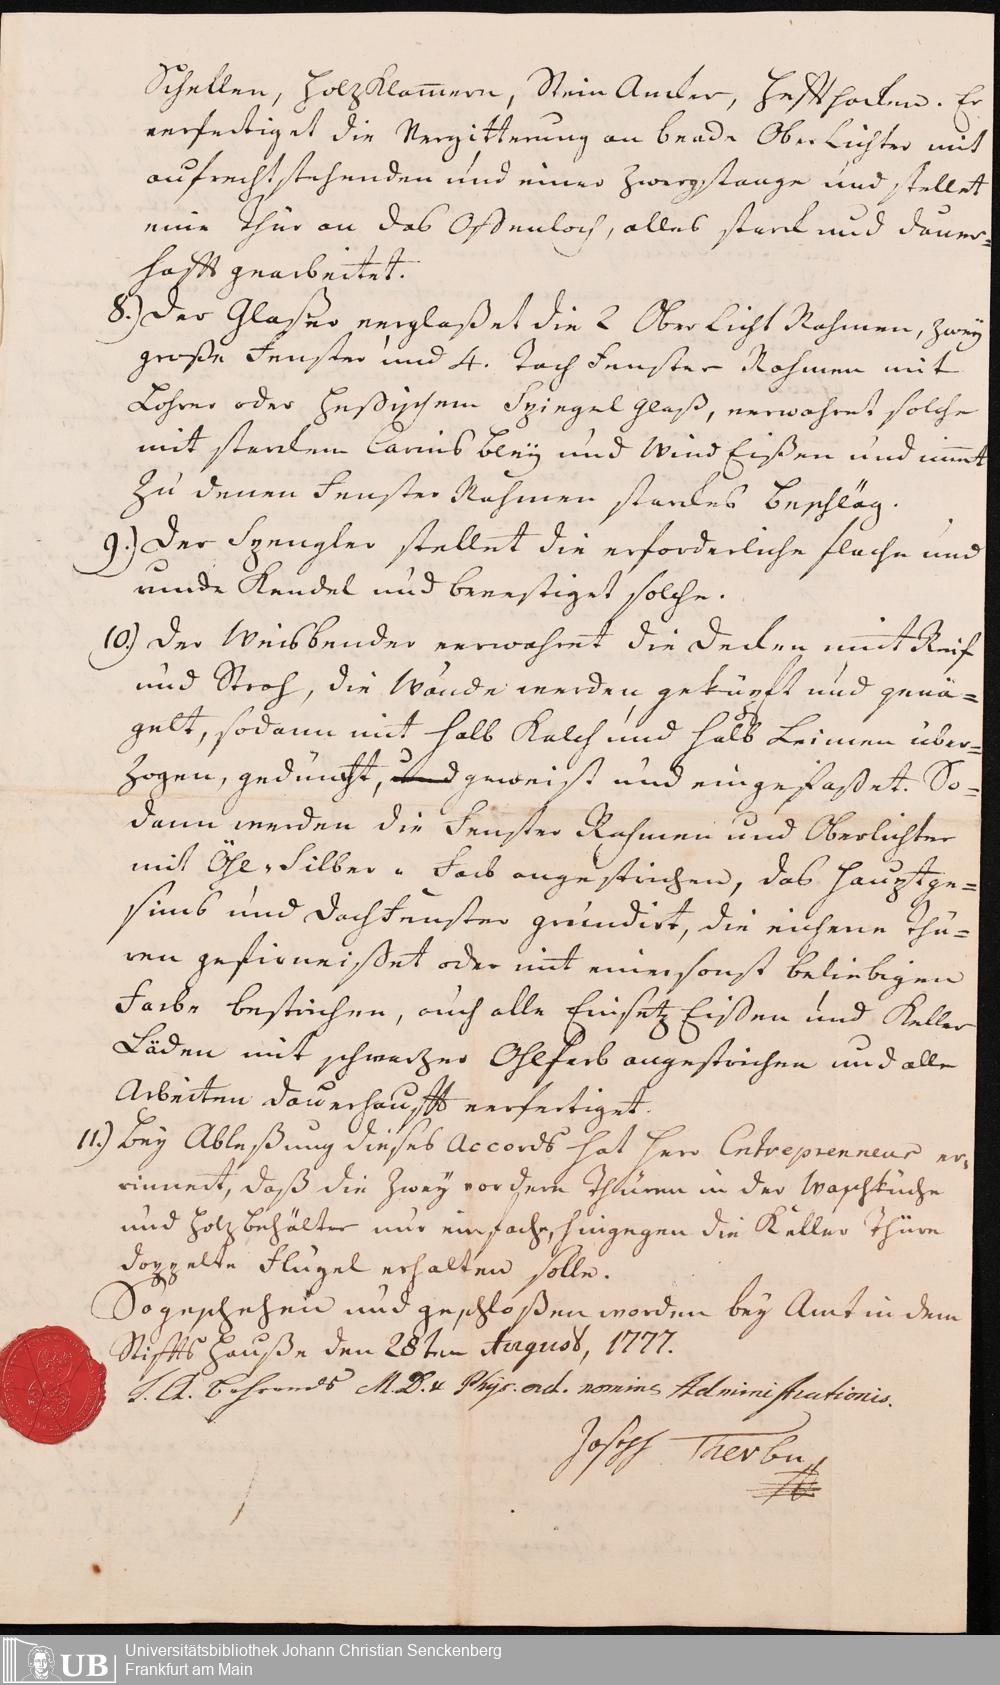 Schellen, Holz Klam̄ern, Stein Ancker, Hefft hacken. Er
verfertiget die Vergitterung an beade Ober Lichter mit
aufrecht stehenden und einer Zwergstange und stellet
eine Thür an das Offenloch, alles starck und dauer=
hafft gearbeitet.
8.) Der Glaßer verglaßet die 2 Ober Licht Rahmen, zweÿ
große Fenster und 4. Tach Fenster Rahmen mit
Lohrer oder Heßischem Spiegel Glaß, verwahret solche
mit starckem Carnis Bleÿ und Wind Eißen und nim̄t
zu denen Fenster Rahmen starckes Beschläg.
9.) Der Spengler stellet die erforderliche flache und
runde Kendel und bevestiget solche.
10.) Der Weisbender verwahret die Decken mit Reif
und Stroh, die Wände werden geküpft und genä=
gelt, sodann mit halb Kalch und halb Leimen über=
zogen, gedüncht, und geweist und eingefaßet. So=
dann werden die Fenster Rahmen und Oberlichter
mit Öhl-Silber-Farb angestrichen, das Hauptge=
sims und Dachfenster gründirt, die eichene Thü=
ren gefirneisset oder mit einer sonst beliebigen
Farbe bestrichen, auch alle Einsetz Eissen und Keller
Läden mit schwartzer Ohlfarb angestrichen und alle
Arbeiten dauerhaufft verfertiget.
11.) Bey Ableßung dieses Accords hat Herr Entreprenneur er=
innert, daß die zwey vordere Thüren in der Waschküche
und Holz behälter nur einfache, hingegen die Keller Thüre
doppelte Flügel erhalten solle.
So geschehen und geschloßen worden bey Amt in dem
Stiffts Hauße den 28ten August, 1777.
J. A. Behrends M. D. & Phys. ord. nomine Administrationis.
Joseph Therbu
Universitätsbibliothek Johann Christian Senckenberg
Frankfurt am Main
UB